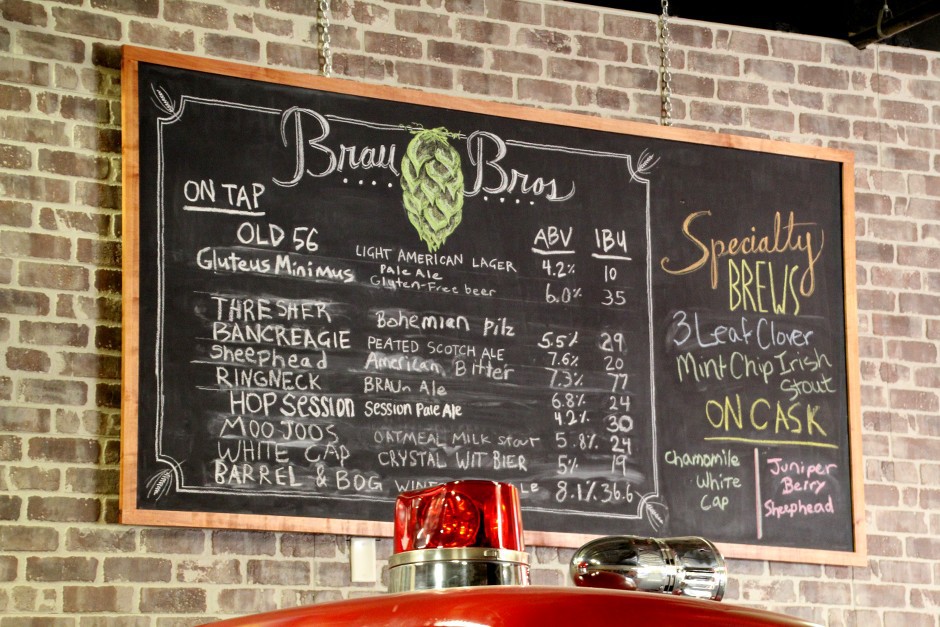 Brau Bros
ON TAP
ABV IBU
OLD 56 LIGHT AMERICAN LAGER 4.2% 10
Gluteus Minimus Pale Ale
Gluten-Free beer 6.0% 35
THRESHER Bohemian Pilz 5.5% 29
BANCREAGIE PEATED SCOTCH ALE 7.6% 20
Sheephead American Bitter 7.3% 77
RINGNECK BRAUn Ale 6.8% 24
HOP SESSION Session Pale Ale 4.2% 30
MOO JOOS OATMEAL MILK stout 5.8% 24
WHITE CAP CRYSTAL WIT BIER 5% 19
BARREL & BOG 8.1% 36.6
Specialty
BREWS
3 Leaf Clover
Mint Chip Irish
Stout
ON CASK
Chamomile
White
Cap
Juniper
Berry
Sheephead